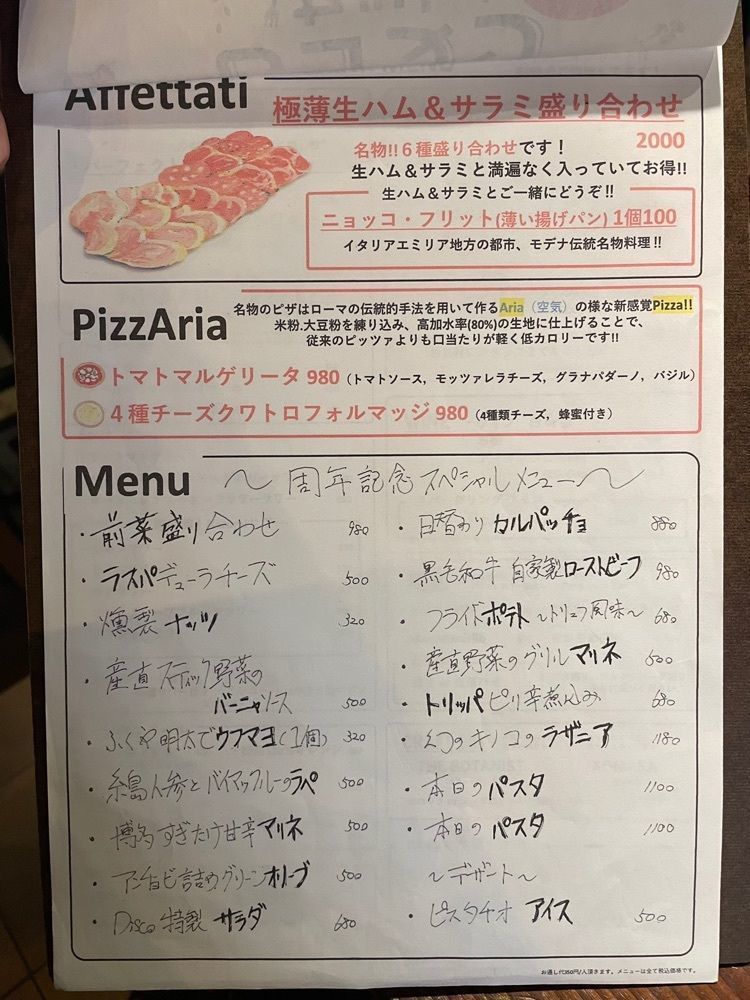 Affettati
極薄生ハム＆サラミ盛り合わせ
2000
名物!!６種盛り合わせです！
生ハム＆サラミと満遍なく入っていてお得!!
生ハム＆サラミとご一緒にどうぞ!!
ニョッコ・フリット(薄い揚げパン) 1個100
イタリアエミリア地方の都市、モデナ伝統名物料理!!
PizzAria
名物のピザはローマの伝統的手法を用いて作るAria（空気）の様な新感覚Pizza!!
米粉.大豆粉を練り込み、高加水率(80%)の生地に仕上げることで、
従来のピッツァよりも口当たりが軽く低カロリーです!!
トマトマルゲリータ 980（トマトソース，モッツァレラチーズ，グラナパダーノ，バジル）
４種チーズクワトロフォルマッジ 980（4種類チーズ，蜂蜜付き）
Menu
〜周年記念スペシャルメニュー〜
・前菜盛り合わせ 980
・ラスパデューラチーズ 500
・燻製ナッツ 320
・産直スティック野菜の
バーニャソース 500
・ふくや明太でウフマヨ(1個) 320
・糸島人参とパイナップルのラペ 500
・博多すぎたけ甘辛マリネ 500
・アンチョビ詰めグリーンオリーブ 500
・Disco特製サラダ 680
・日替わりカルパッチョ 880
・黒毛和牛自家製ローストビーフ 980
・フライドポテト〜トリュフ風味〜 680
・産直野菜のグリルマリネ 500
・トリッパピリ辛煮込み 680
・幻のキノコのラザニア 1180
・本日のパスタ 1100
・本日のパスタ 1100
〜デザート〜
・ピスタチオアイス 500
お通し代350円/人頂きます。メニューは全て税込価格です。